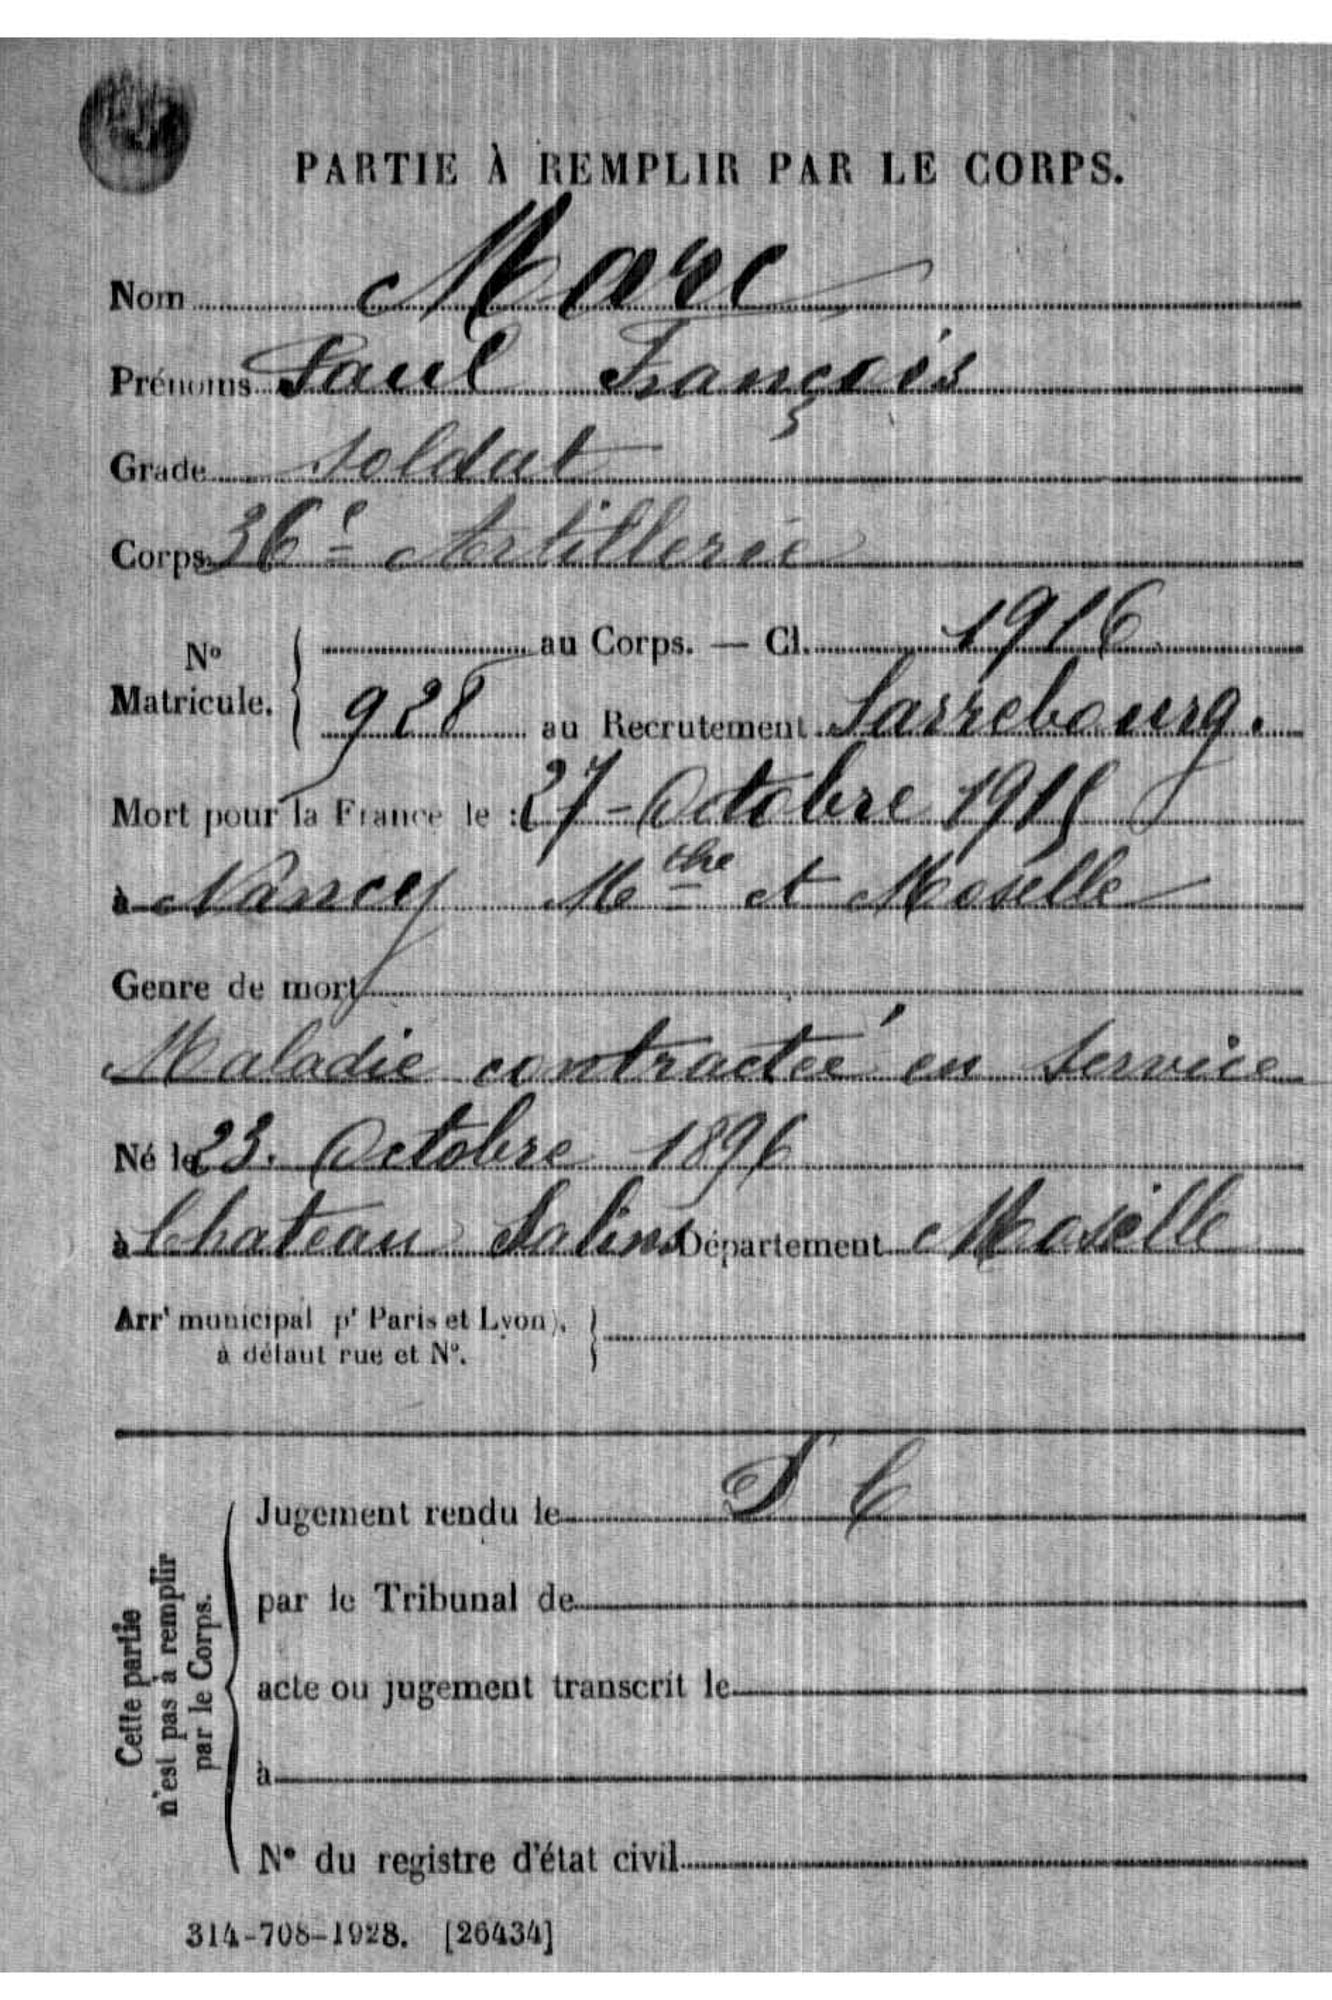 PARTIE À REMPLIR PAR LE CORPS.
Nom Marc
Prénoms Paul François
Grade soldat
Corps 36e Artillerie
No Matricule. { au Corps. — Cl. 1916
928 au Recrutement Sarrebourg.
Mort pour la France le : 27 - Octobre 1915
à Nancy Mthe et Moselle
Genre de mort
Maladie contractée en service
Né le 23. Octobre 1896
à Chateau Salins Département Moselle
Arrt municipal pr Paris et Lyon), }
à défaut rue et No.
Jugement rendu le
par le Tribunal de
acte ou jugement transcrit le
à
No du registre d'état civil
Cette partie
n'est pas à remplir
par le Corps.
314-708-1928. [26434]